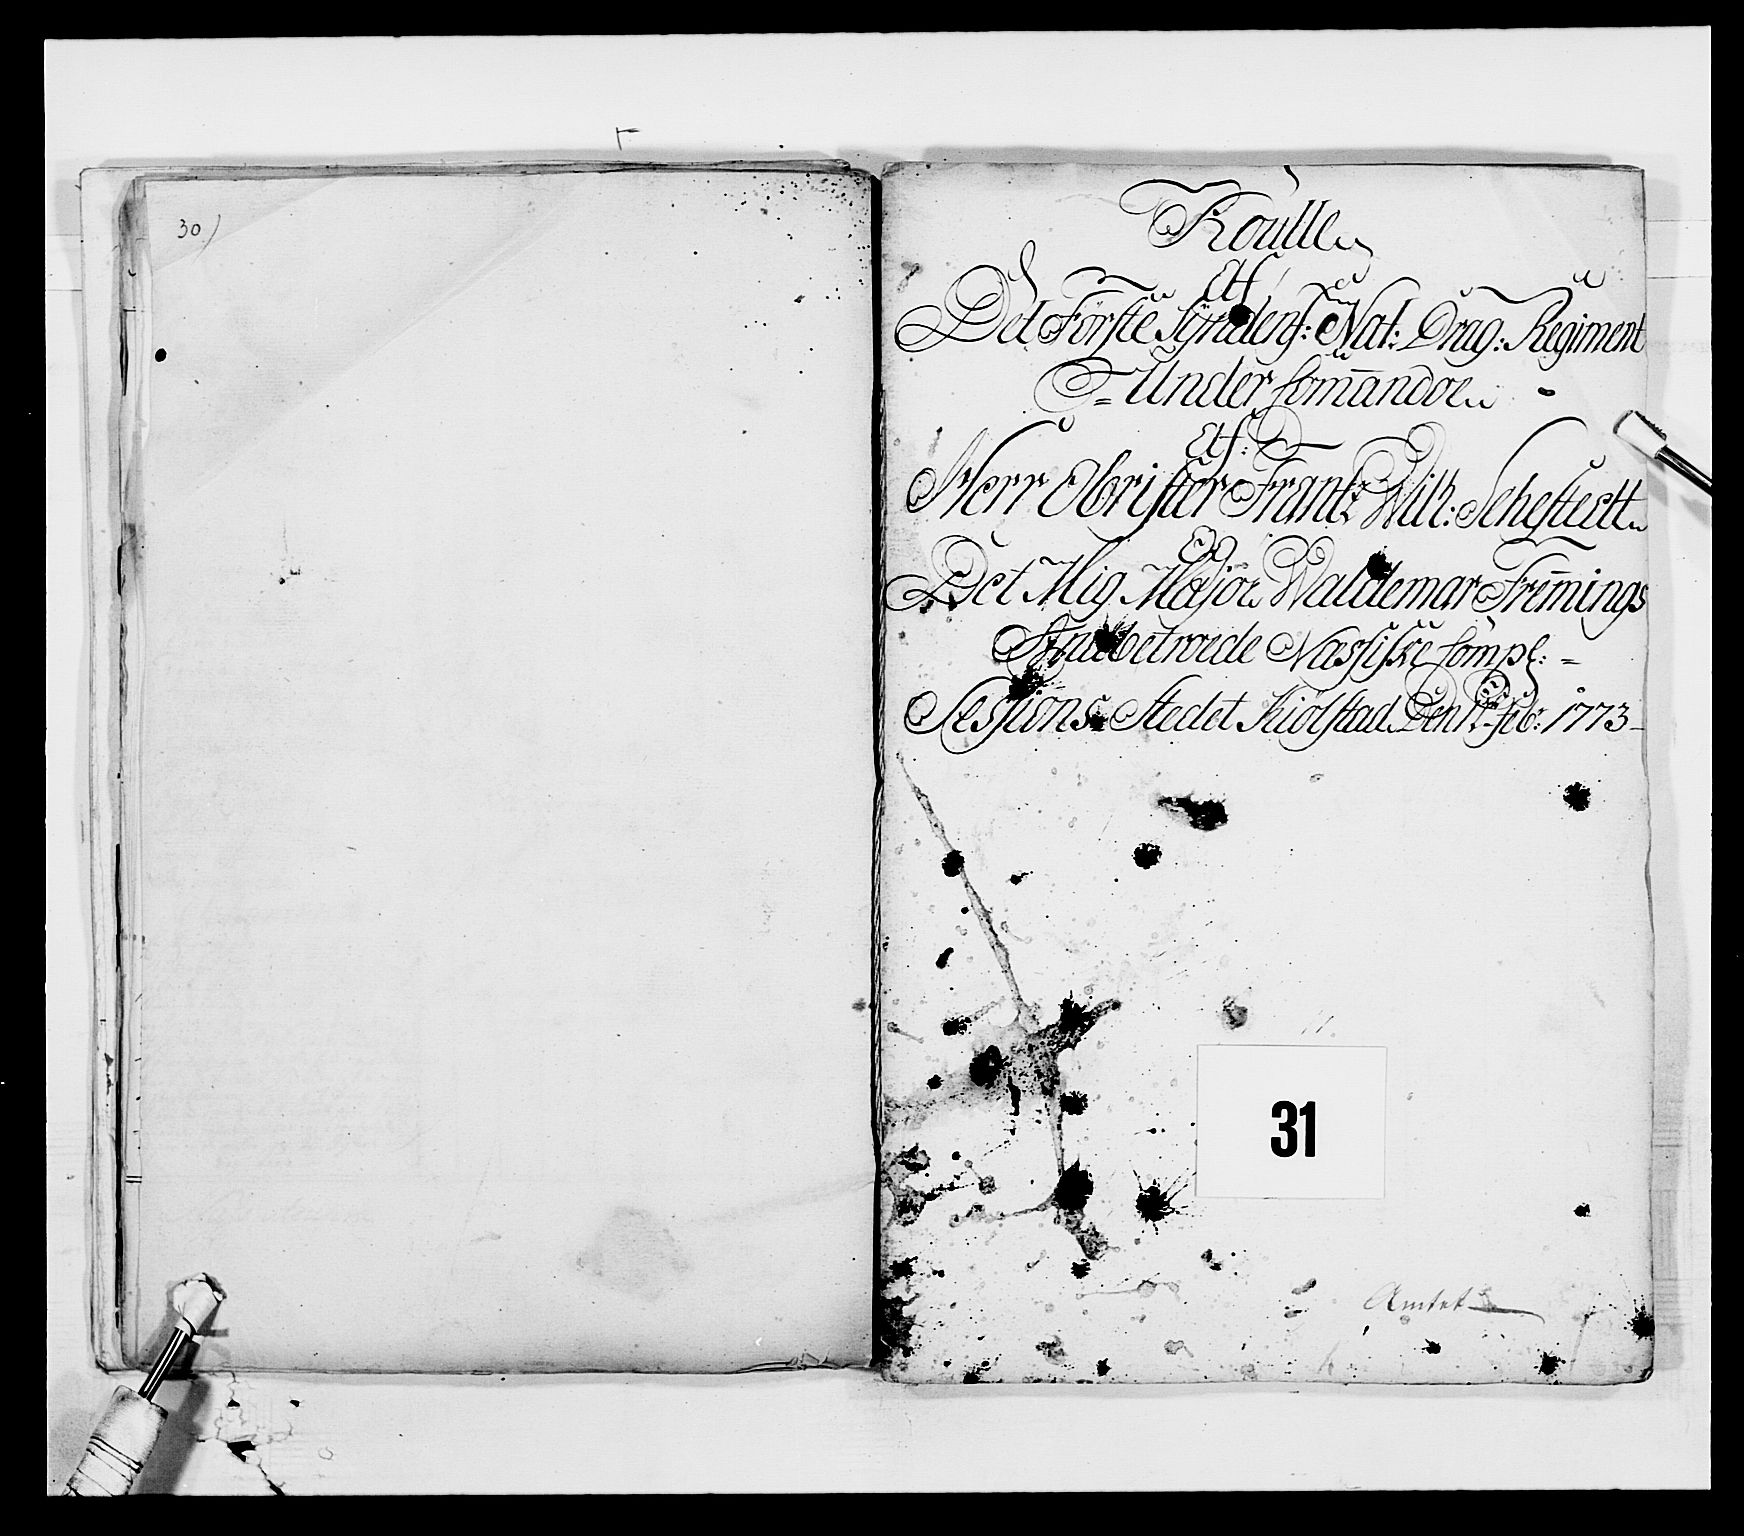 30)
Roulle
Af
Det Förste Syndenf: Nat: Drag: Regiment
Under Commandoe
Af:
Herr Obrister Frantz Wilh: Sehestedt
Og
Det Mig Major Waldemar Fremings
Anbetroede Nassiske Comp:
Sessions Stedet Kiölstad Den Feb: 1773
31
Amtet